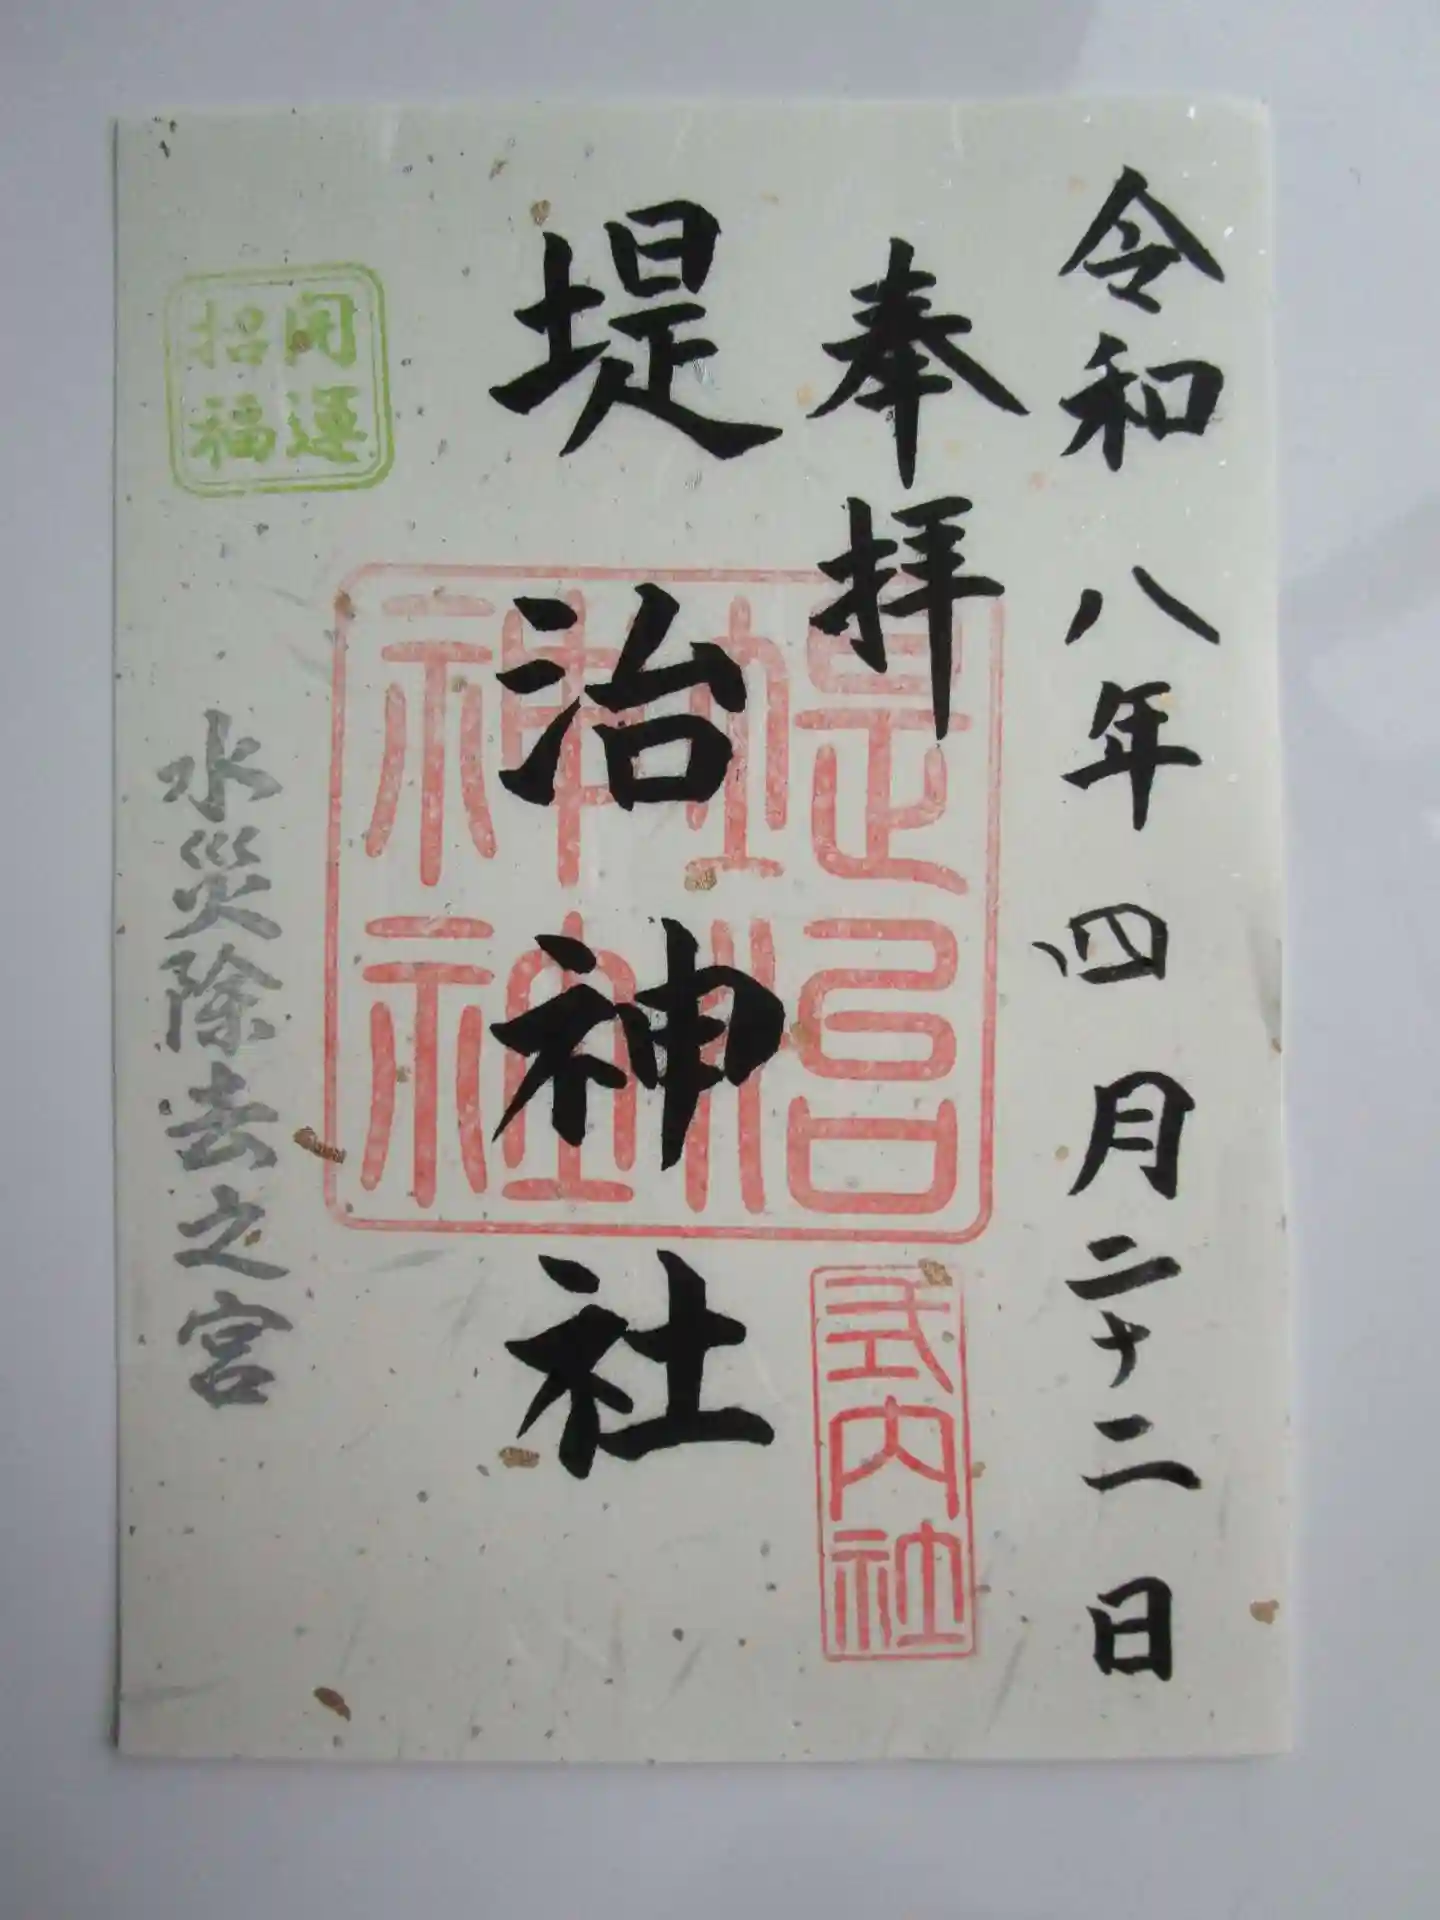 令和八年四月二十二日
奉拝
堤治神社
堤治
神社
式内社
開運
招福
水災除去之宮